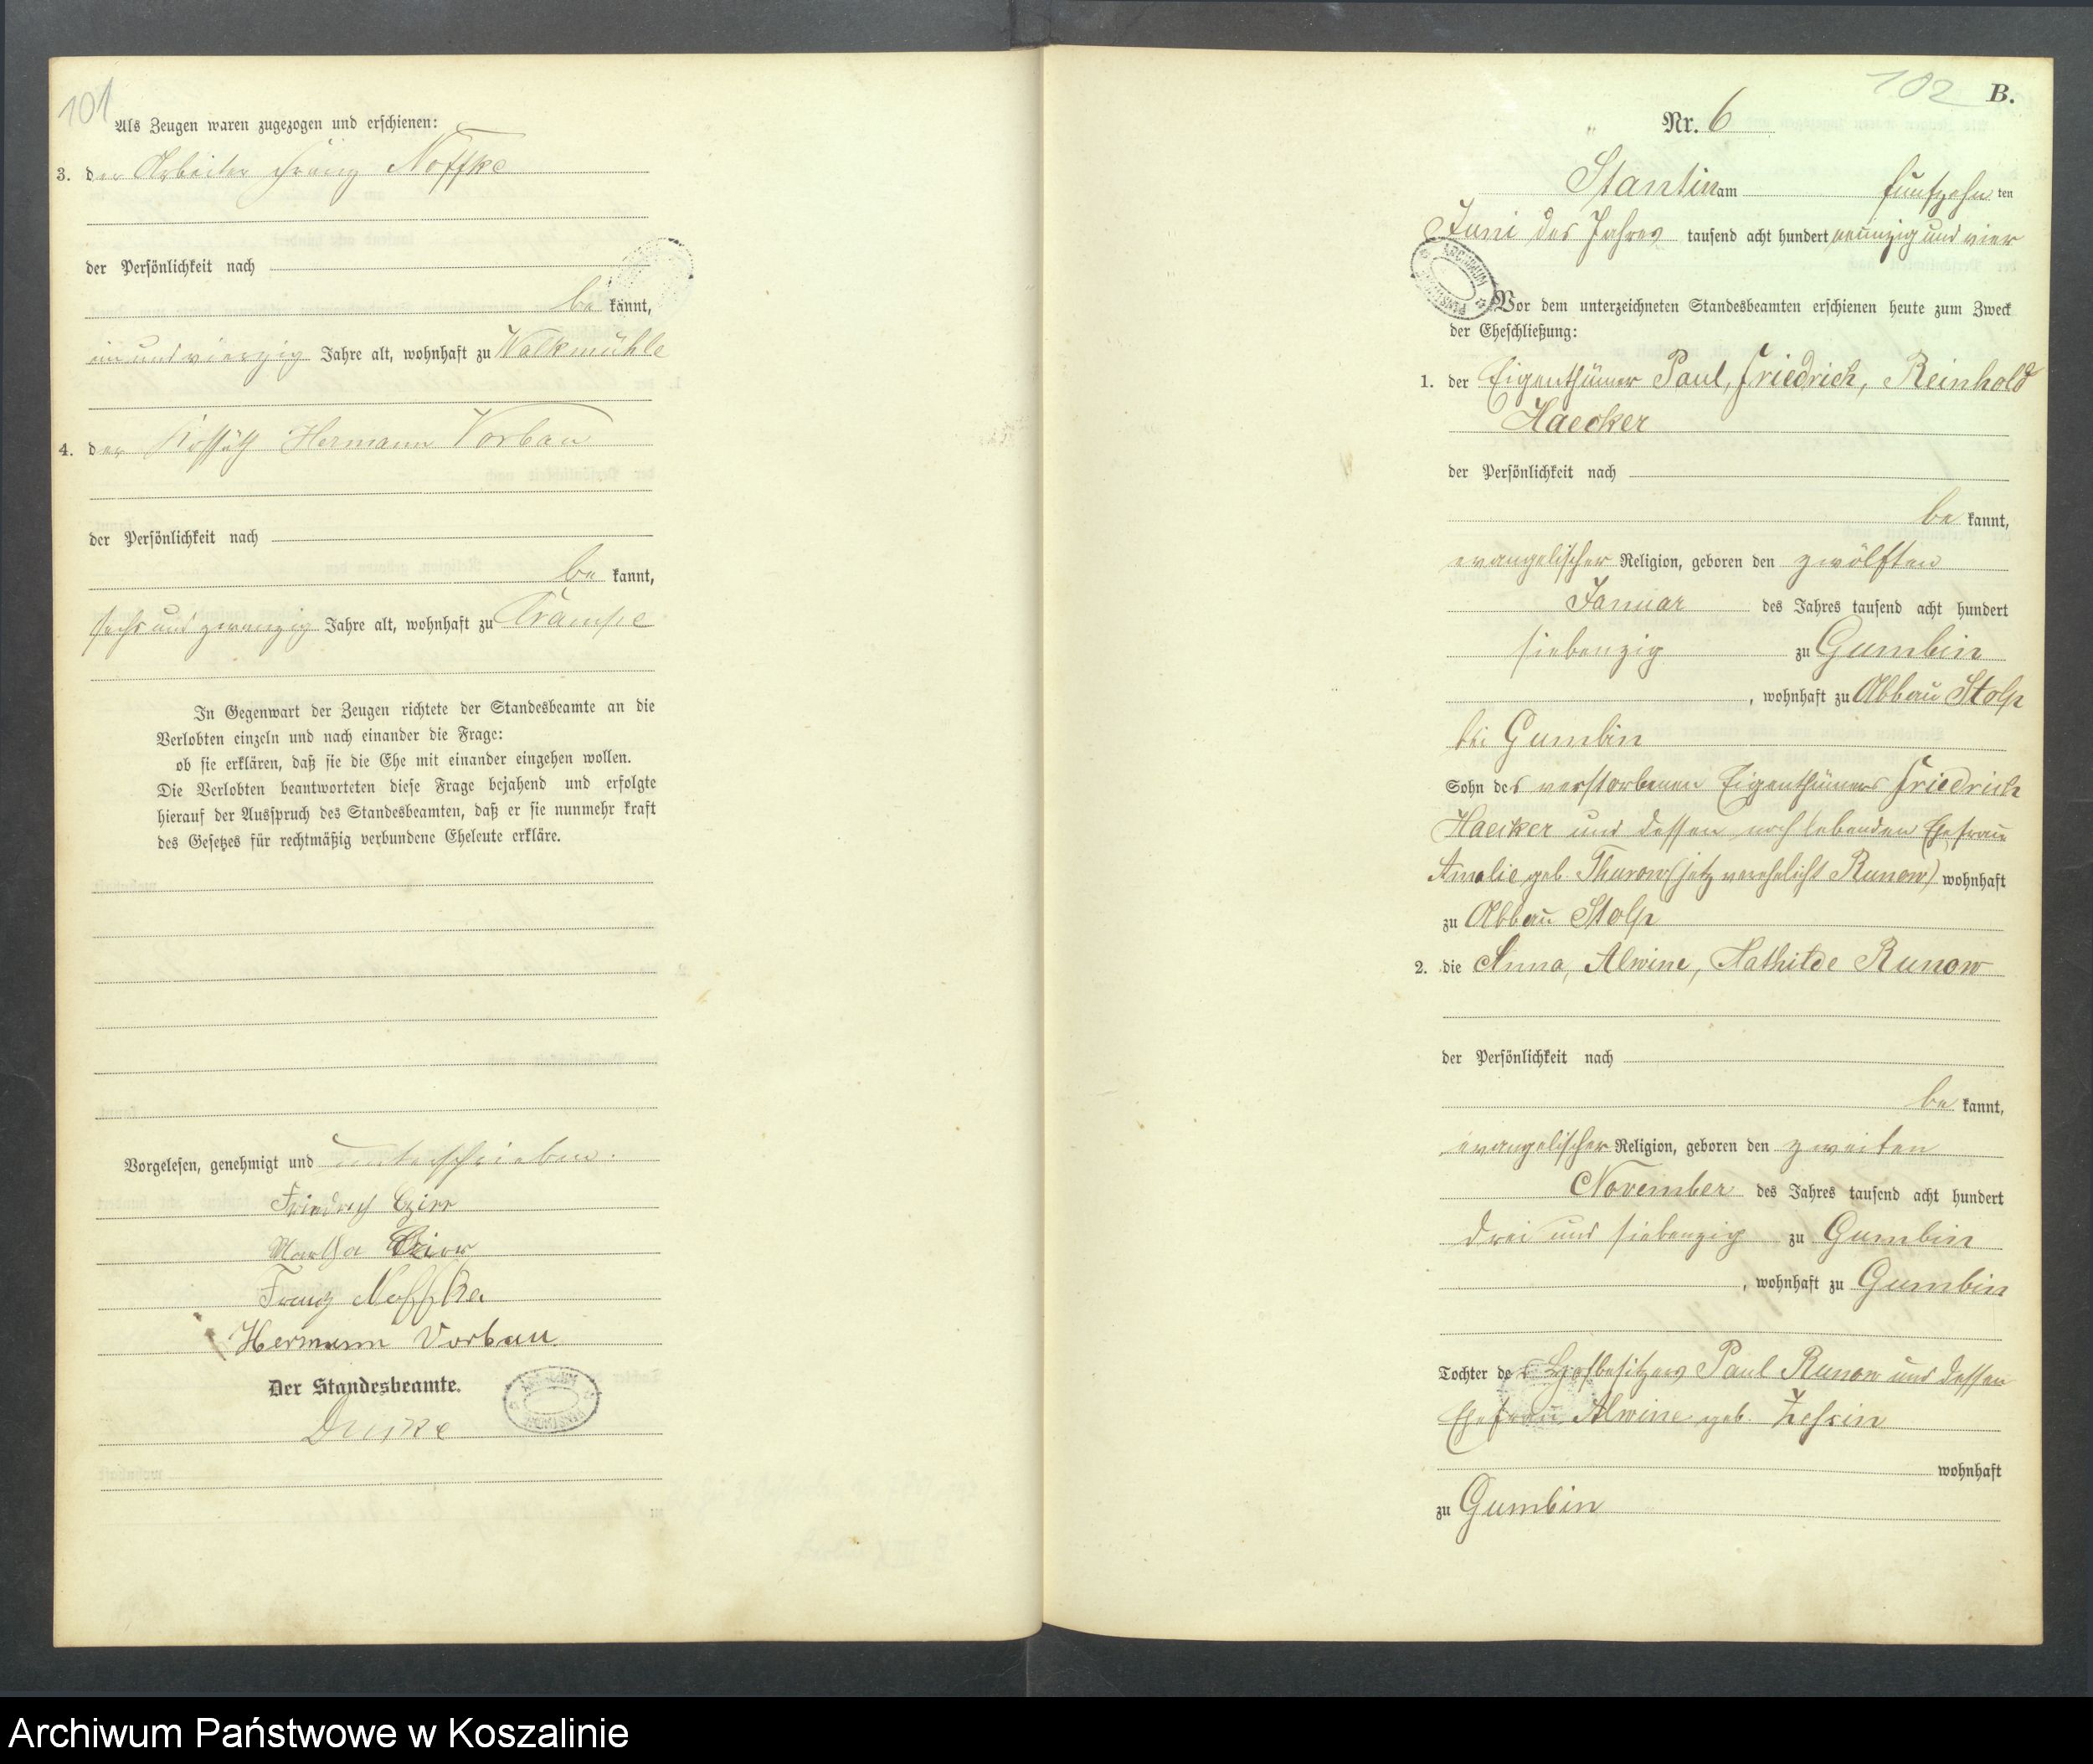 101
Als Zeugen waren zugezogen und erschienen:
3. der Arbeiter Franz Noffke
der Persönlichkeit nach
be kannt,
ein und vierzig Jahre alt, wohnhaft zu Walkmühle
4. der Kossäth Hermann Vorbau
der Persönlichkeit nach
be kannt,
sechs und zwanzig Jahre alt, wohnhaft zu Trampe
In Gegenwart der Zeugen richtete der Standesbeamte an die
Verlobten einzeln und nach einander die Frage:
ob sie erklären, daß sie die Ehe mit einander eingehen wollen.
Die Verlobten beantworteten diese Frage bejahend und erfolgte
hierauf der Ausspruch des Standesbeamten, daß er sie nunmehr kraft
des Gesetzes für rechtmäßig verbundene Eheleute erkläre.
Vorgelesen, genehmigt und unterschrieben.
Friedrich
Martha
Franz Noffke
Hermann Vorbau
Der Standesbeamte.
102
B.
Nr. 6
Stantin am fünfzehn ten
Juni des Jahres tausend acht hundert neunzig und vier
Vor dem unterzeichneten Standesbeamten erschienen heute zum Zweck
der Eheschließung:
1. der Eigenthümer Paul, Friedrich, Reinhold
Haecker
der Persönlichkeit nach
be kannt,
evangelischer Religion, geboren den zwölften
Januar des Jahres tausend acht hundert
siebenzig zu Gumbin
, wohnhaft zu Abbau Stolp
bei Gumbin
Sohn des verstorbenen Eigenthümers Friedrich
Haecker und dessen noch lebenden Ehefrau
Amalie geb. Thurow (jetz verehelicht Runow) wohnhaft
zu Abbau Stolp
2. die Anna, Alwine, Mathilde Runow
der Persönlichkeit nach
be kannt,
evangelischer Religion, geboren den zweiten
November des Jahres tausend acht hundert
drei und siebenzig zu Gumbin
, wohnhaft zu Gumbin
Tochter des Hofbesitzers Paul Runow und dessen
Ehefrau Alwine geb. Zessin
wohnhaft
zu Gumbin
Archiwum Państwowe w Koszalinie